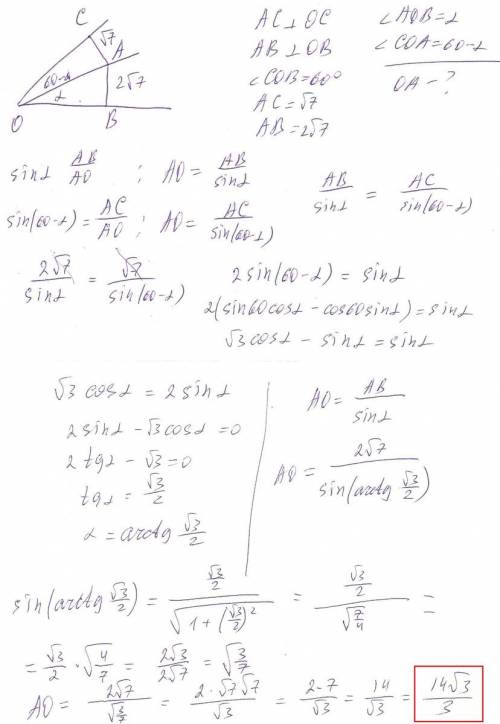 C
√7
A
60-α
2√7
α
O
B
AC⊥OC
AB⊥OB
∠COB=60°
AC=√7
AB=2√7
∠AOB=α
∠COA=60-α
OA-?
sinα AB/AO ; AO = AB/sinα
sin(60-α) = AC/AO ; AO = AC/sin(60-α)
AB/sinα = AC/sin(60-α)
2√7/sinα = √7/sin(60-α)
2sin(60-α) = sinα
2(sin60cosα - cos60sinα) = sinα
√3cosα - sinα = sinα
√3 cosα = 2sinα
2sinα - √3cosα = 0
2tgα - √3 = 0
tgα = √3/2
α = arctg √3/2
AO = AB/sinα
AO = 2√7/sin(arctg √3/2)
sin(arctg √3/2) = (√3/2)/√(1+(√3/2)²) = (√3/2)/√(7/4) =
= √3/2 · √(4/7) = 2√3/2√7 = √(3/7)
AO = 2√7/√(3/7) = 2·√7√7/√3 = 2·7/√3 = 14/√3 = 14√3/3